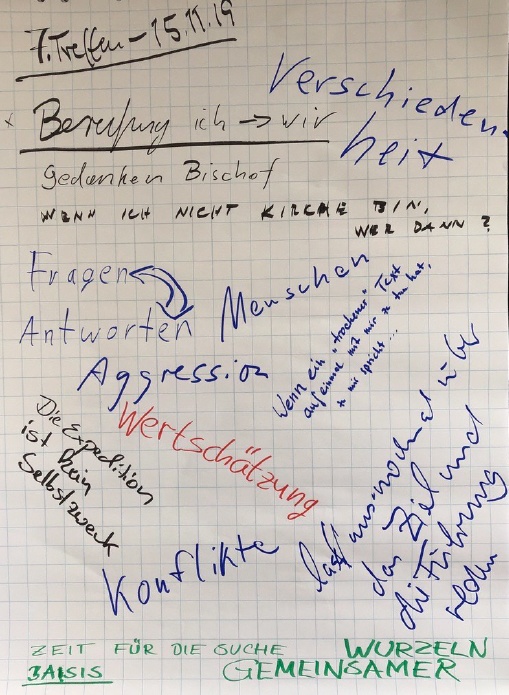 7. Treffen - 15.11.19
Verschieden-
heit
x Berufung ich → wir
Gedanken Bischof
WENN ICH NICHT KIRCHE BIN,
WER DANN?
Fragen
Antworten
Menschen
Wenn ein "trockener" Text
auf einmal mit mir zu tun hat,
zu mir spricht...
Aggression
Wertschätzung
Die Expedition
ist kein
Selbstzweck
Konflikte
lasst uns nochmal über
das Ziel und
die Führung
reden
ZEIT FÜR DIE SUCHE WURZELN
BASIS GEMEINSAMER